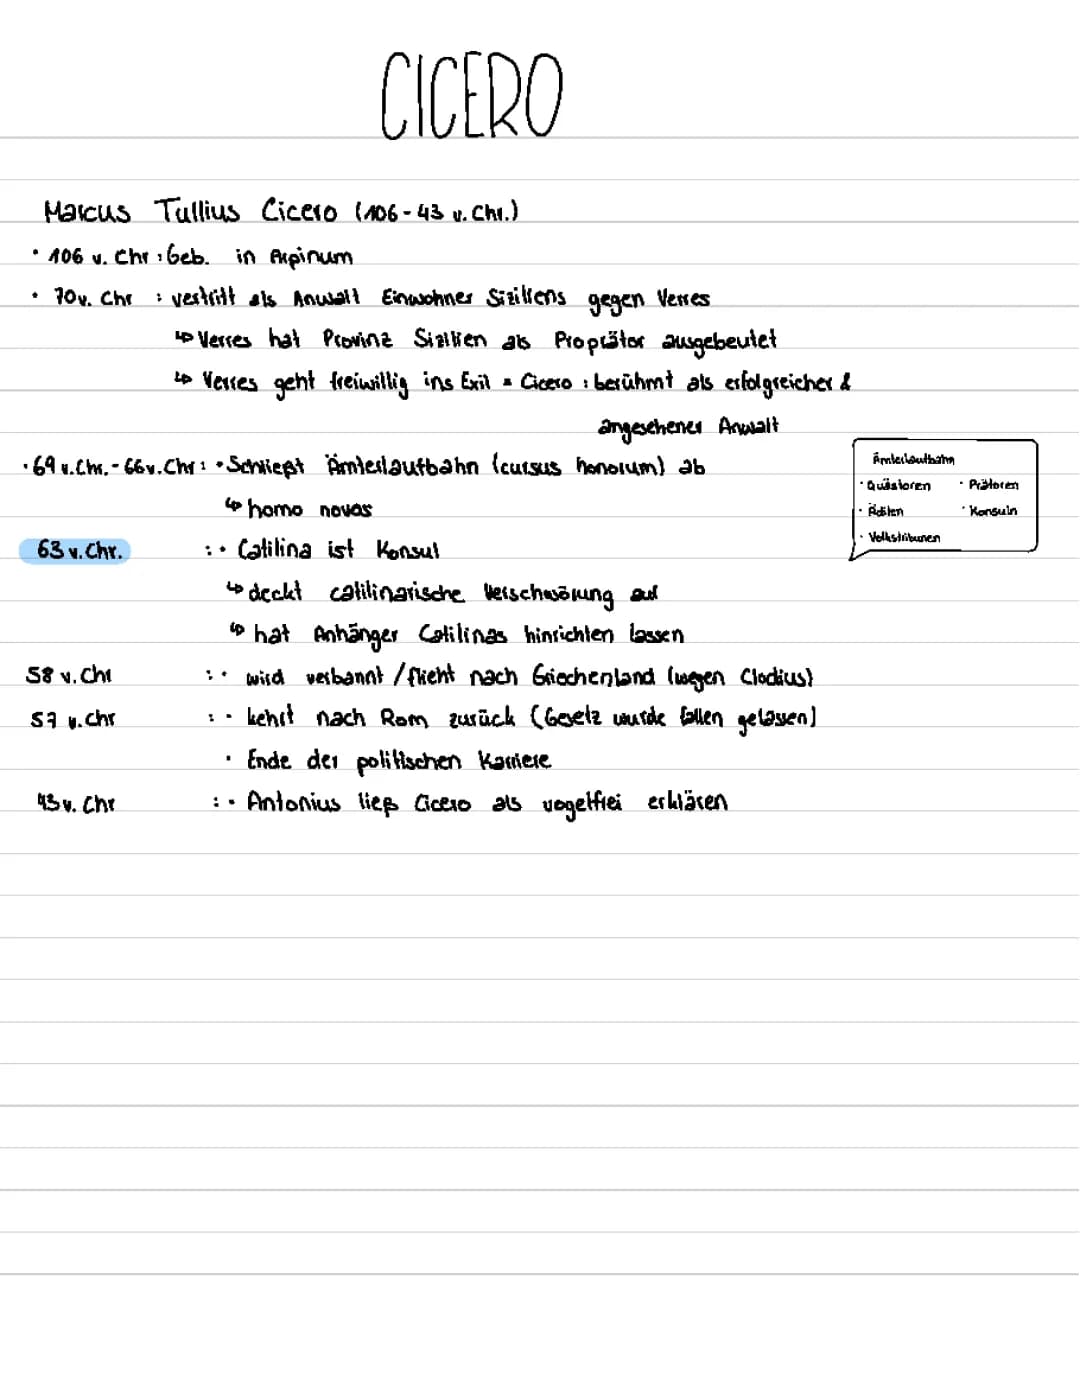 CICERO
Marcus Tullius Cicero (106-43 v. Chr.)
• 106 v. Chr : Geb. in Arpinum
• 70 v. Chr : vertritt als Anwalt Einwohner Siziliens gegen Verres
↳ Verres hat Provinz Sizilien als Proprätor ausgebeutet
↳ Verres geht freiwillig ins Exil = Cicero : berühmt als erfolgreicher &
angesehener Anwalt
• 69 v. Chr. - 66 v. Chr : • Schließt Ämterlaufbahn (cursus honorum) ab
↳ homo novos
63 v. Chr. : • Catilina ist Konsul
↳ deckt catilinarische Verschwörung auf
↳ hat Anhänger Catilinas hinrichten lassen
58 v. Chr : • wird verbannt / flieht nach Griechenland (wegen Clodius)
57 v. Chr : • kehrt nach Rom zurück (Gesetz wurde fallen gelassen)
• Ende der politischen Karriere
43 v. Chr : • Antonius ließ Cicero als vogelfrei erklären
Ämterlaufbahn
• Quästoren • Prätoren
• Ädilen • Konsuln
• Volkstribunen